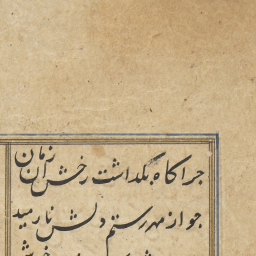 چراگاه بگذاشت رخش آن زمان
چو از مهر رستم دلش نارمید